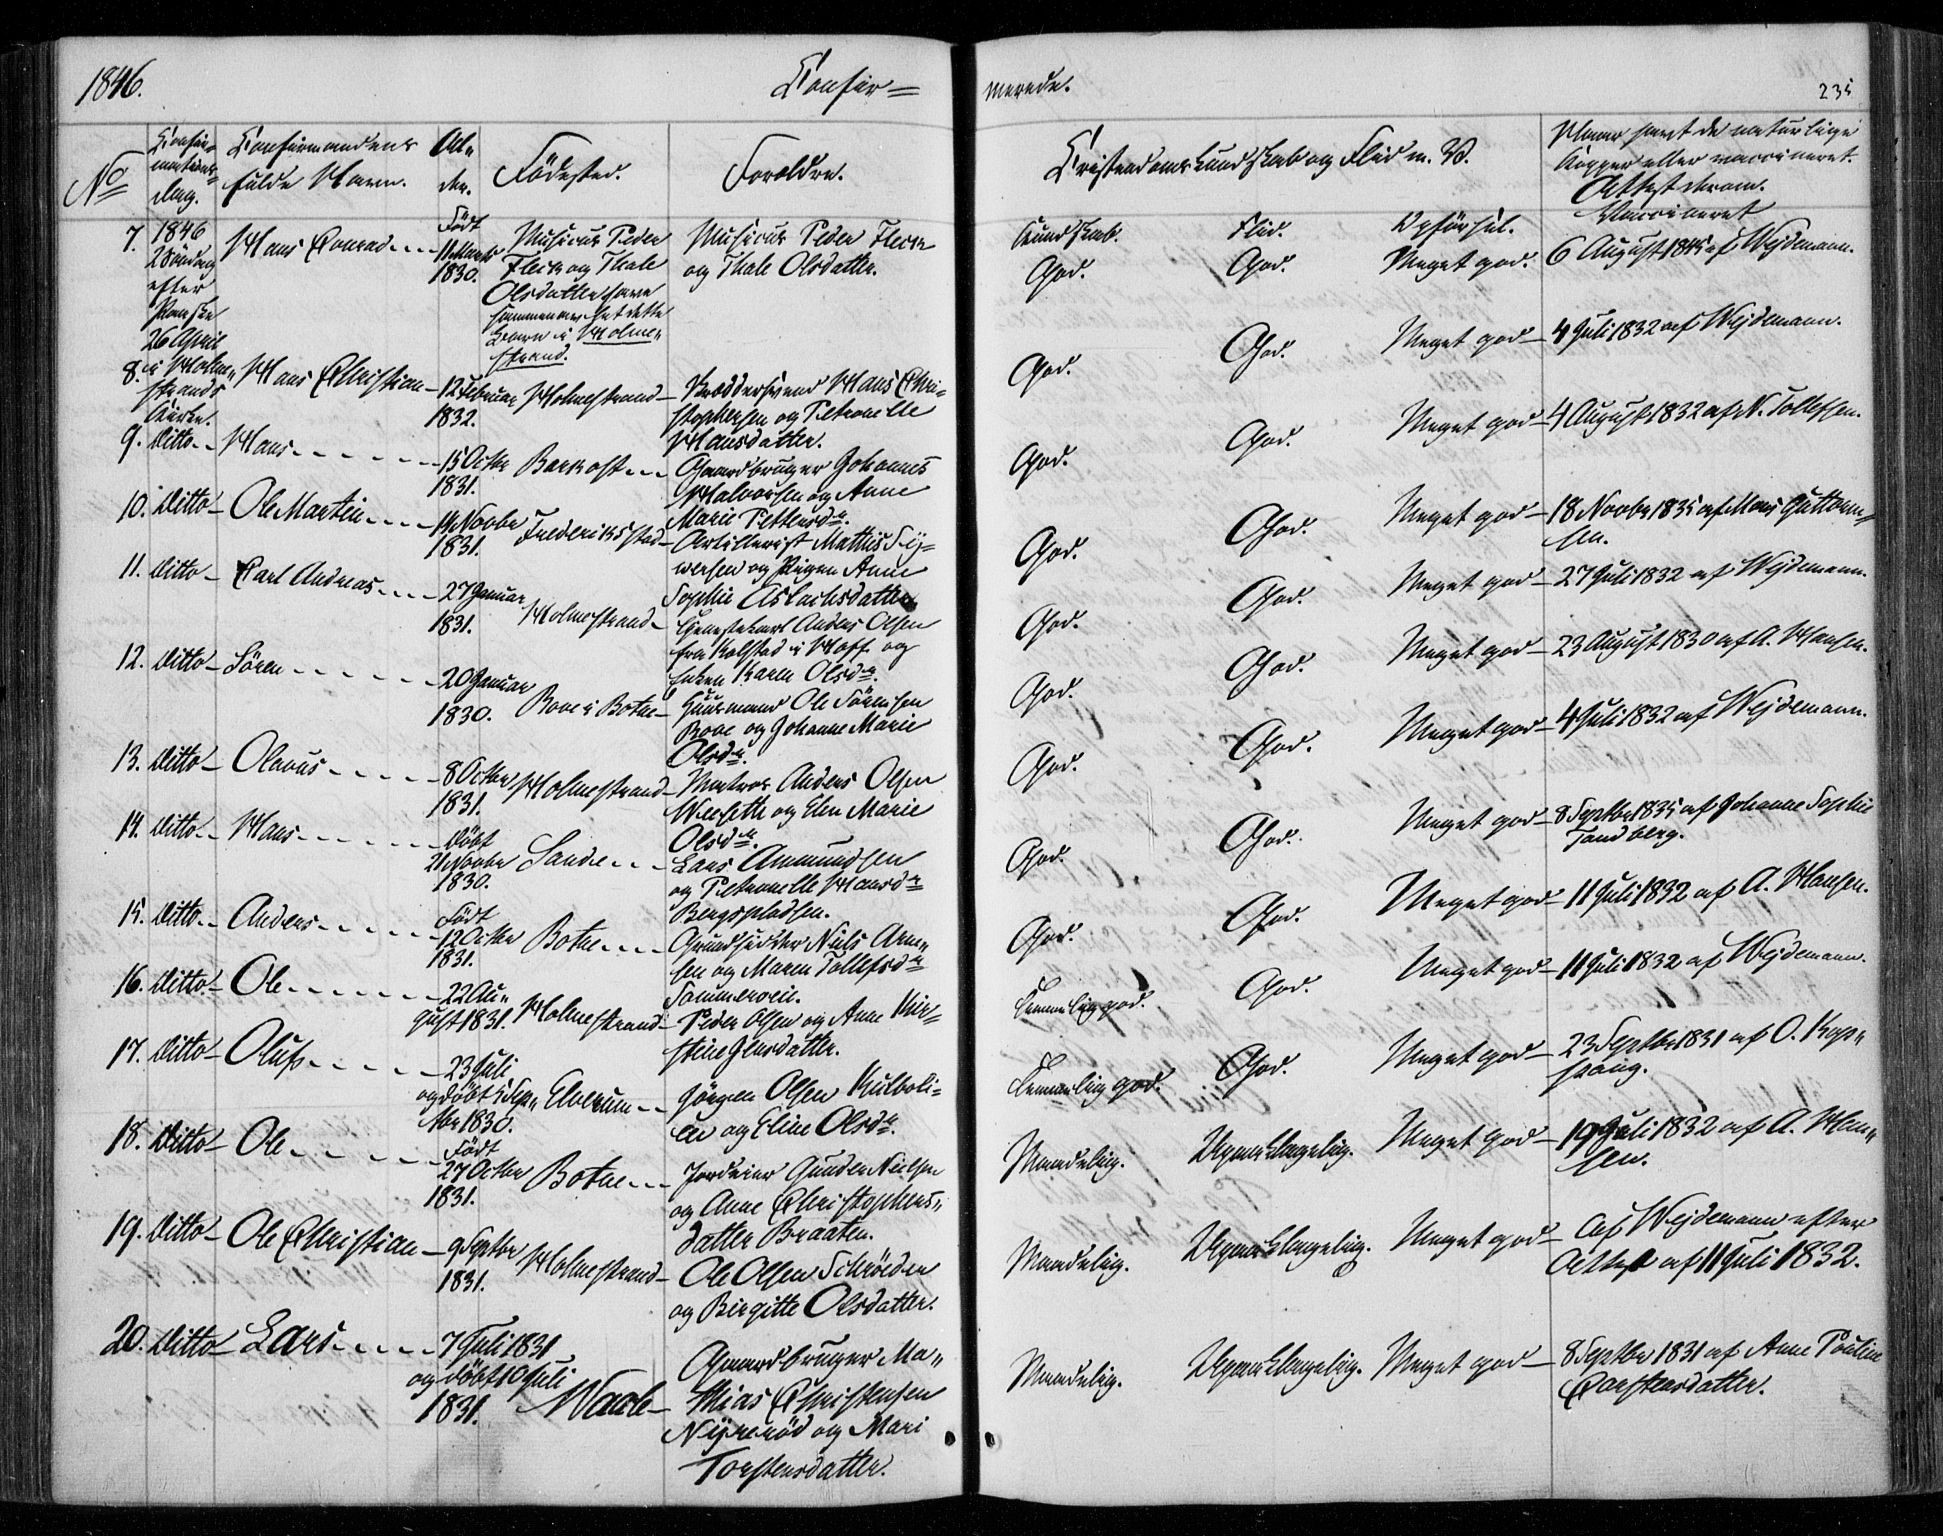 1846.
Confir=
merede.
235
No
Confir=
mations=
dag.
Confirmandens
fulde Navn.
Al„
der.
Födested.
Foreldre.
Cristendoms Kundskab og Flid m. V.
Naar havt de naturlige
Kopper eller vaccineret.
Attest derom.
7.
1846
2 Söndag
efter
Paaske
26 April
i Holme„
strands
Kirke.
Hans Conrad
Födt
11 Marts
1830.
Musicus Peder
Fleck og Thale
Olsdatter have
sammenavlet dette
Barn i Holme„
strand.
Musicus Peder Fleck
og Thale Olsdatter.
Kundskab.
God.
Flid.
God.
Opförsel.
Meget god.
Vaccineret
6 August 1845 af Wejdemann.
8.
Hans Christian
12 Februar
1832.
Holmestrand
Hans Chri=
stophersen og Petronelle
Hansdatter.
God.
God.
Meget god
4 Juli 1832 af Wejdemann.
9. Ditto
Hans
15 Octbr
1831.
Backast
Gaardbruger Johannes
Halvorsen og Anne
Marie Pettersdr.
God.
God.
Meget god
4 August 1832 af N. Tollefsen.
10. Ditto
Ole Martin
14 Novbr
1831.
Frederiksstad
Artillerist Mathis Sy=
wersen og Pigen Anne
Sophie Aslachsdatter.
God.
God.
Meget god
18 Novbr 1835 af Mons Guttorm=
sen.
11. Ditto
Carl Andreas
27 Januar
1831.
Holmestrand
Tjenestekarl Anders Olsen
fra Kolstad i Hoff og
Enken Karen Olsdr.
God.
God.
Meget god
27 Juli 1832 af Wejdemann.
12. Ditto
Sören
20 Januar
1830.
Bove i Botne
Huusmand Ole Sörensen
Bove og Johanne Marie
Olsdr.
God.
God.
Meget god
23 August 1830 af A. Hansen.
13. Ditto
Olavus
8 Octbr
1831.
Holmestrand
Matros Anders Olsen
Weseth og Elen Marie
Olsdr.
God.
God.
Meget god
4 Juli 1832 af Wejdemann.
14. Ditto
Hans
döbt
21 Novbr
1830.
Sande
Lars Ammundsen
og Petronelle Hansdr
Bergspladsen.
God.
God.
Meget god
8 Septbr 1835 af Johanne Sophie
Tandberg.
15. Ditto
Anders
Födt
12 Octbr
1831.
Botne
Grundsidder Niels Arne„
sen og Maren Tollefsdr
Sommerveie.
God.
God.
Meget god
11 Juli 1832 af A. Hansen.
16. Ditto
Ole
22 Au„
gust 1831.
Holmestrand
Peder Olsen og Anne Kir=
stine Jensdatter.
Temmelig god.
God.
Meget god
11 Juli 1832 af Wejdemann.
17. Ditto
Oluf
23 Juli
og döbt 5 Sep„
tbr 1830.
Elverum
Jörgen Olsen Kulboli=
en og Eline Olsdr.
Temmelig god.
God.
Meget god
23 Septbr 1831 af O. Kop„
pang.
18. Ditto
Ole
Födt
27 Octbr
1831.
Botne
Jordeier Gunder Nielsen
og Anne Christophers„
datter Braaten.
Maadelig.
Upaaklagelig.
Meget god
19 Juli 1832 af A. Han„
sen.
19. Ditto
Ole Christian
9 Septbr
1831.
Holmestrand
Ole Olsen Schröder
og Birgitte Olsdatter.
Maadelig.
Upaaklagelig.
Meget god
Af Wejdemann efter
Attest af 11 Juli 1832.
20. Ditto
Lars
7 Juli 1831
og döbt 10 Juli
1831.
Waale
Gaardbruger Ma„
thias Christensen
Nyreröd og Mari
Torstensdatter.
Maadelig.
Upaaklagelig.
Meget god
8 Septbr 1831 af Anne Pouline
Carstensdatter.